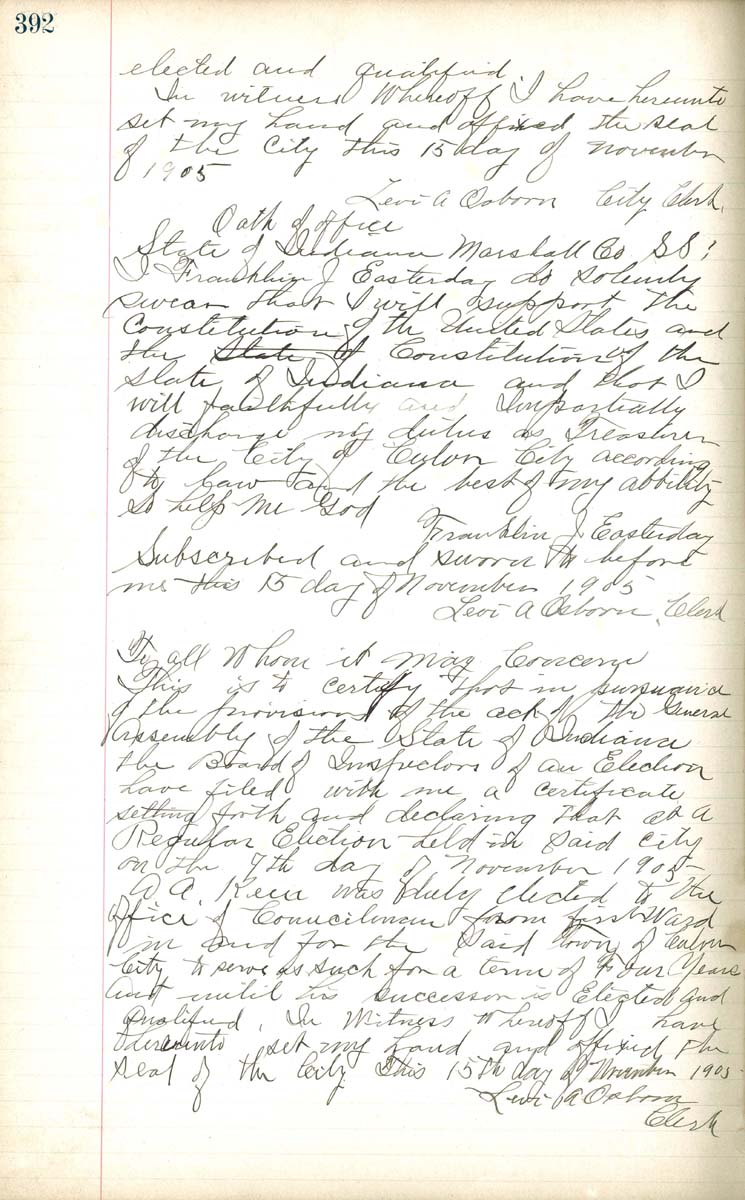 392
elected and qualifid.
In witness Whereoff I have hereunto
set my hand and affixed the seal
of the City this 15 day of November
1905
Levi A Osborn City Clerk.
Oath of office
State of Indiana Marshall Co SS:
I Franklin J Easterday do solemly
swear that I will support the
Constitution of th United States and
the State of Constitution of the
State of Indiana and that I
will faithfully and Impartially
discharge my duties as Treasurer
of the City of Culver City according
to Law and the best of my abbility
So help me God
Franklin J Easterday
Subscribed and sworn to before
me this 15 day of November 1905
Levi A Osborn, Clerk
To all Whom it may Concern
This is to certify that in pursuance
of the provisions of the act of the General
Assembly of the State of Indiana
the Board of Inspectors of an Election
have filed with me a certificate
setting forth and declaring that at a
Regular Election held in said city
on the 7th day of November 1905
A A. Keen was duly elected to the
office of Councilman from first Ward
in and for the said Town of Culver
City to serve as such for a term of Four Years
and until his successor is Elected and
qualified. In Witness Whereoff I have
hereunto set my hand and affixed the
seal of the City. This 15th day of November 1905
Levi A Osborn
Clerk